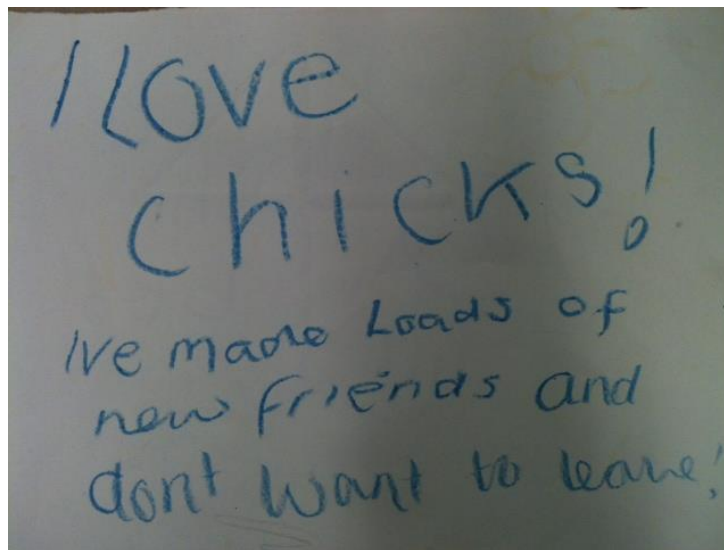 I LOVE
chicks!
Ive made Loads of
new friends and
dont want to leave!